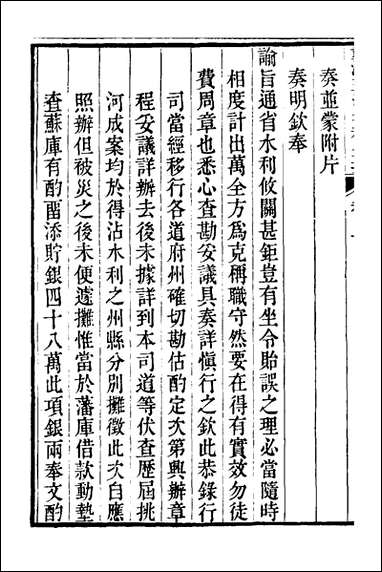 奏並蒙附片
奏明欽奉
諭旨通省水利攸關甚鉅豈有坐令貽誤之理必當隨時
相度計出萬全方爲克稱職守然要在得有實效勿徒
費周章也悉心查勘妥議具奏詳愼行之欽此恭錄行
司當經移行各道府州確切勘估酌定次第興辦章
程妥議詳辦去後未據詳到本司道等伏查歷屆挑
河成案均於得沾水利之州縣分別攤徵此次自應
照辦但被災之後未便遽攤惟當於藩庫借款動墊
查蘇庫有酌畱添貯銀四十八萬此項銀兩奉文酌